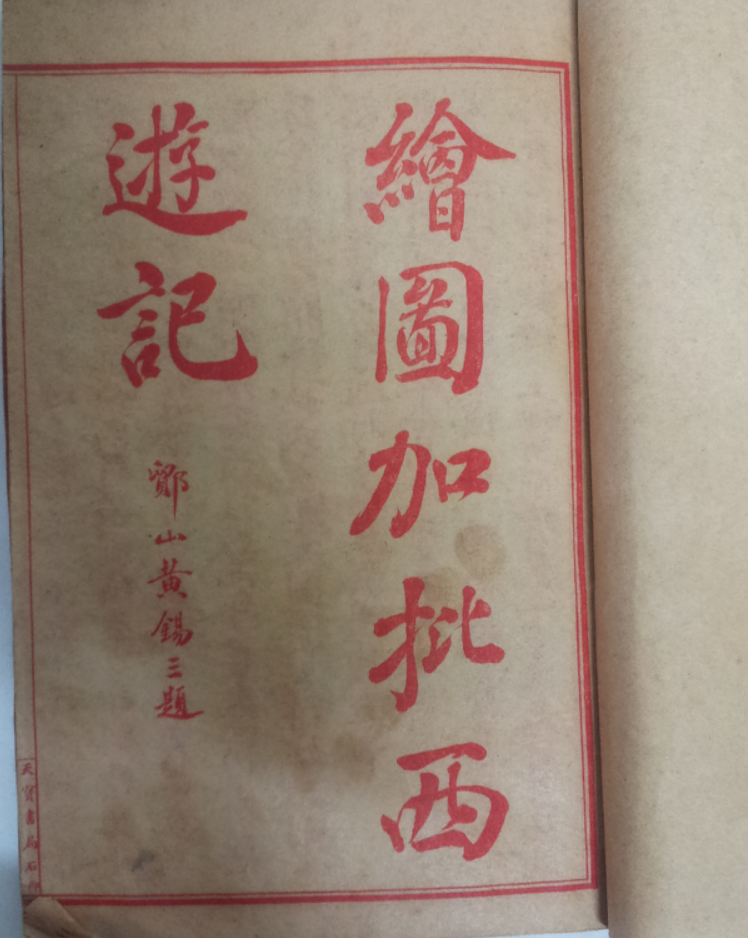 繪圖加批西
遊記
鄮山黃錫三題
天寶書局石印